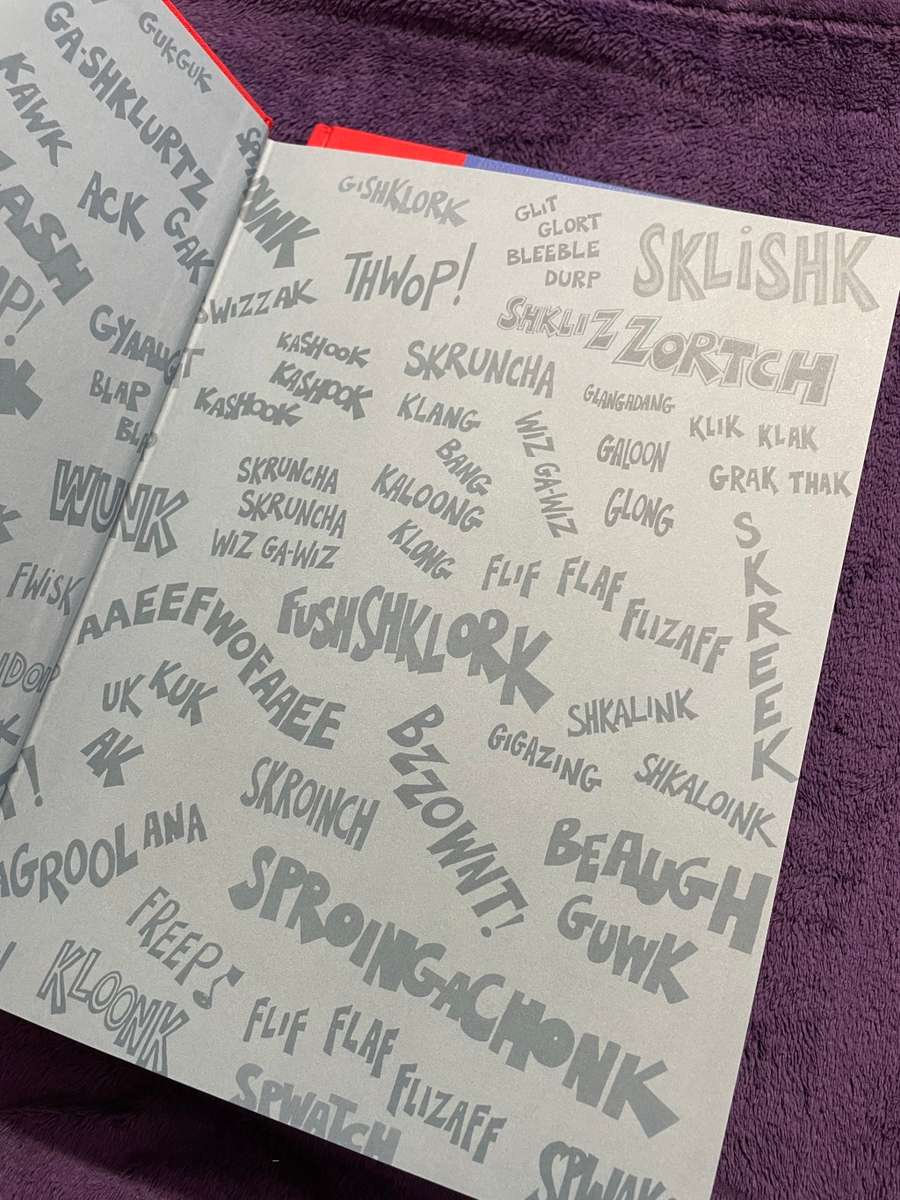 GUKGUK
GA-SHKLURTZ
KAWK
ACK
GAK
GYAAUGT
BLAP
BLAP
WUNK
FWISK
GISHKLORK
GLIT
GLORT
BLEEBLE
DURP
SKLISHK
THWOP!
SWIZZAK
SHKLIZZORTCH
KASHOOK
KASHOOK
KASHOOK
SKRUNCHA
GLANGADANG
KLIK KLAK
KLANG
BANG
WIZ GA-WIZ
GALOON
GRAK THAK
SKRUNCHA
SKRUNCHA
WIZ GA-WIZ
KALOONG
KLONG
GLONG
SKREEK
FLIF FLAF
FLIZAFF
AAEEFWOFAAEE
FUSHSHKLORK
UK KUK
AK
SHKALINK
GIGAZING
SHKALOINK
BZZOWNT!
SKROINCH
BEAUGH
GUWK
SPROINGACHONK
FREEP♪
KLOONK
FLIF FLAF
FLIZAFF
SPWATCH